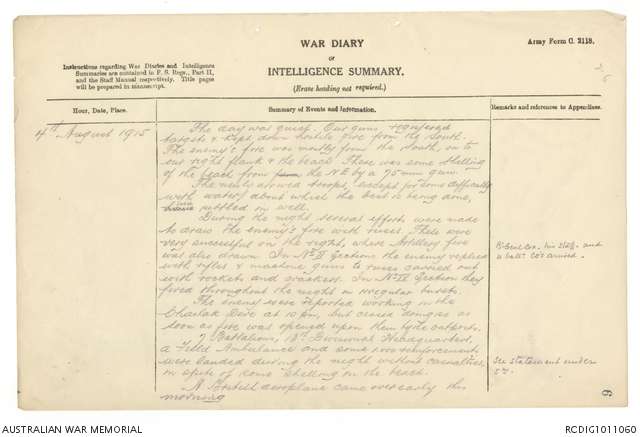 WAR DIARY
OR
INTELLIGENCE SUMMARY.
(Erase heading not required.)
Army Form C. 2118.
Instructions regarding War Diaries and Intelligence
Summaries are contained in F. S. Regs., Part II,
and the Staff Manual respectively. Title pages
will be prepared in manuscript.
Hour, Date, Place.
Summary of Events and Information.
Remarks and references to Appendices.
4th August 1915
The day was quiet. Our guns registered
targets & kept down hostile fire from the South.
The enemy's fire was mostly from the South, on to
our right flank & the beach. There was some shelling
of the beach from the N.E by a 75 mm gun.
The newly arrived troops, except for some difficulty
with water, about which the best is being done,
have settled on well.
During the night several efforts were made
to draw the enemy's fire with ruses. These were
very successful on the right, where Artillery fire
was also drawn. In No II Section the enemy replied
with rifles & machine guns to ruses carried out
with rockets and crackers. In No IV Section they
fired throughout the night in irregular bursts.
The enemy were reported working in the
Chailak Dere at 10 pm, but ceased doing so as
soon as fire was opened upon them by the outposts.
7 Battalions, 13th Divisional Headquarters,
a Field Ambulance and some reinforcements
were landed during the night without casualties,
in spite of some shelling on the beach.
A hostile aeroplane came over early this
morning
his staff and
arrived.
See statement under
5th.
6
AUSTRALIAN WAR MEMORIAL
RCDIG1011060